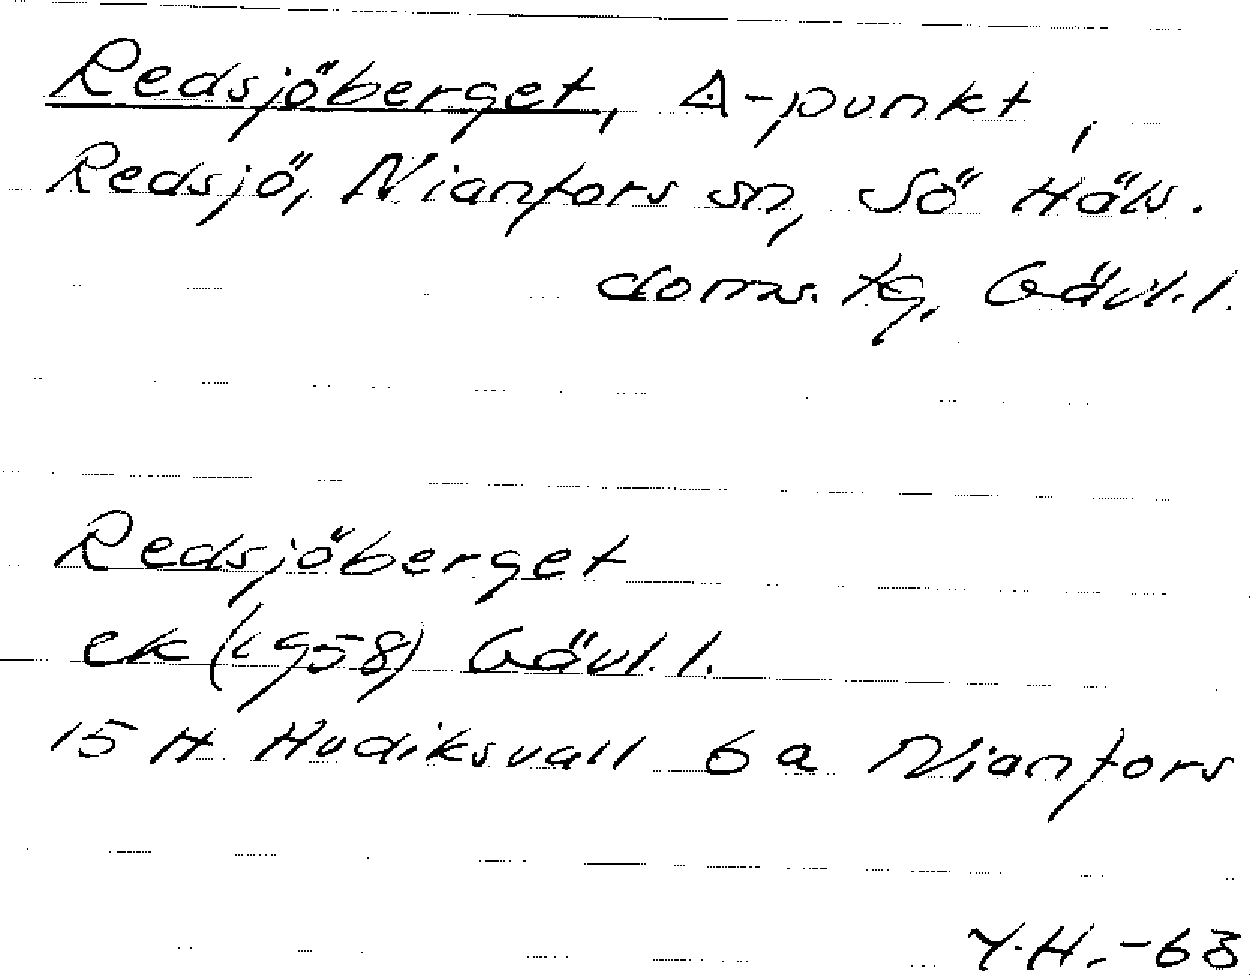 Redsjöberget, △-punkt,
Redsjö, Nianfors sn, Sö Häls.
doms. tg, Gävl. l.
Redsjöberget
ek (1958) Gävl. l.
15 H Hudiksvall 6 a Nianfors
Y.H. -63